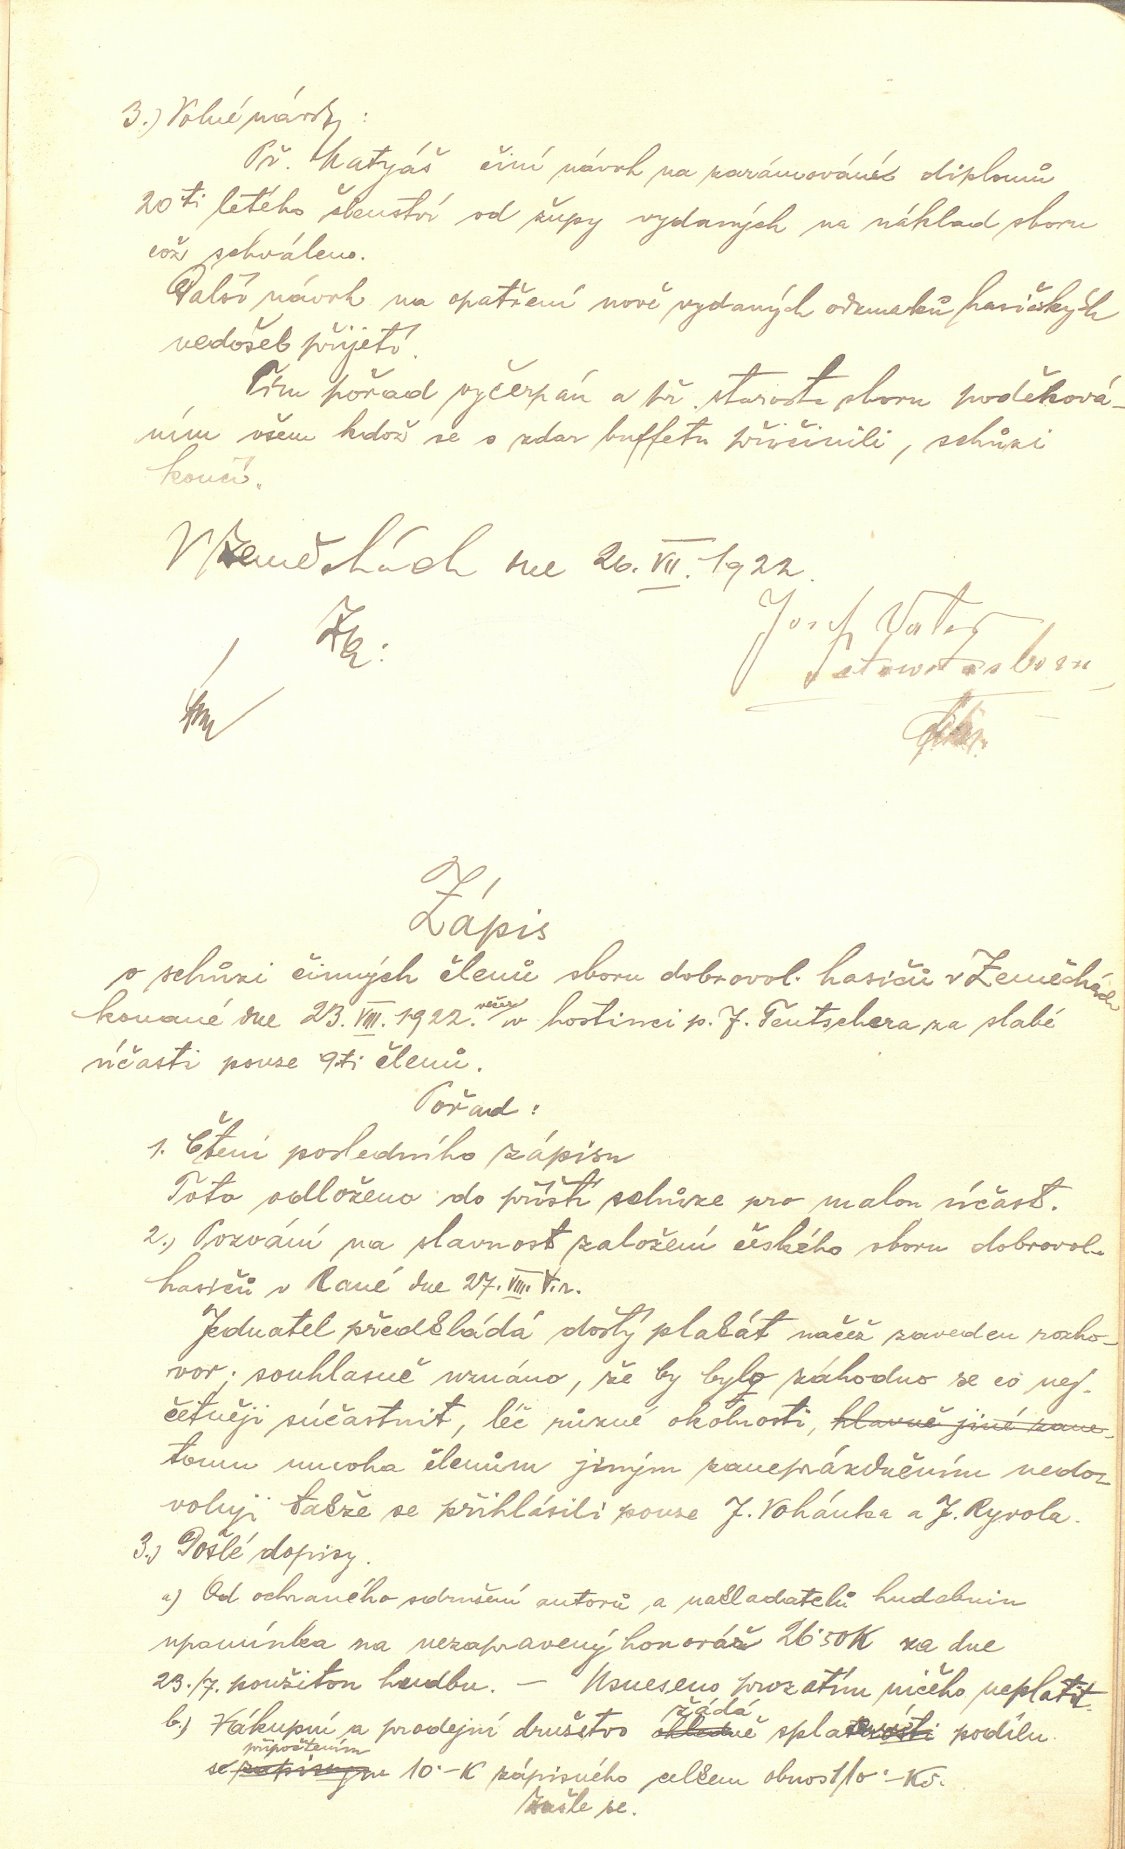 3.) Volné návrhy:
Př. Matyáš činí návrh na zarámování diplomů
20ti letého členství od župy vydaných na náklad sboru
což schváleno.
Další návrh na opatření nově vydaných odznaků hasičských
nedošel přijetí.
Tím pořad vyčerpán a př. starosta sboru poděková-
ním všem kdož se o zdar buffetu přičinili, schůzi
končí.
V Zeměchách dne 26. VII. 1922.
Josef Vater
starosta sboru
Zápis
o schůzi činných členů sboru dobrovol. hasičů v Zeměchách
konané dne 23. VIII. 1922. večer v hostinci p. J. Teutschera za slabé
účasti pouze 9ti členů.
Pořad:
1. Čtení posledního zápisu
Toto odloženo do příští schůze pro malou účast.
2.) Pozvání na slavnost založení českého sboru dobrovol.
hasičů v Rané dne 27. VIII. t.r.
Jednatel předkládá došlý plakát načež zaveden rozho-
vor; souhlasně uznáno, že by bylo záhodno se co nej-
četněji súčastnit, léč různé okolnosti, hlavně jiné zane-
tomu mnoha členům jiným zaneprázdněním nedo-
volují takže se přihlásili pouze J. Vohánka a J. Ryvola.
3.) Došlé dopisy.
a) Od ochraného sdružení autorů a nakladatelů hudebnin
upomínka na nezapravený honorář 26·50K za dne
23./7. použitou hudbu. — Usneseno prozatím ničeho neplatit.
b.) Nákupní a prodejní družstvo žádá splacení podílu
připočtením
se 10·-K zápisného celkem obnos 110·-Kč.
Zašle se.